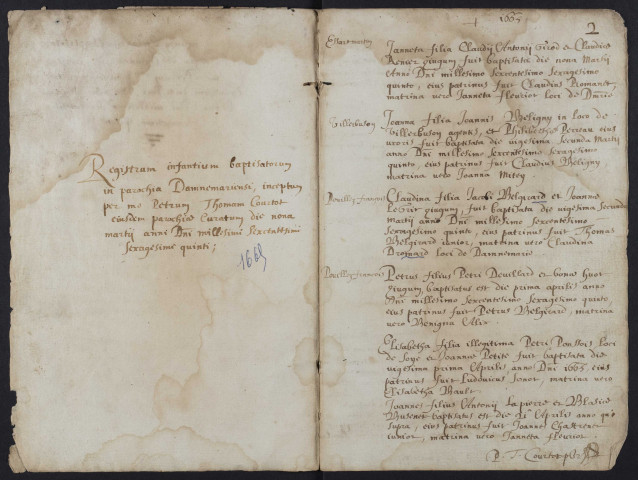 Registrum infantium baptisatorum
in parochia Damnemariensi, inceptum
per me Petrum Thomam Courtot
eiusdem parochiae Curatum die nona
martij anni Dni millesimi sexcentesimi
sexagesimi quinti;
1665
1665
2
Janneta filia Claudij Antonij et Claudiae
Renier giugum, fuit baptisata die nona Martij
Anno Dni millesimo sexcentesimo sexagesimo
quinto, eius patrinus fuit Claudius Romanet,
matrina vero Janneta fleuriot loci de
Villerbuson
Joanna filia Joannis Beligny in loco de
Villerbuson agentis, et Philiberthae Perreau eius
uxoris fuit baptisata die vigesima secunda Martij
anno Dni millesimo sexcentesimo sexagesimo
quinto, eius patrinus fuit Claudius Beligny
matrina vero Joanna Mitey
Pouilley françois
Claudina filia Jacobi Belgirard et Joannae
giugum, fuit baptisata die vigesima secunda
martij anno Dni millesimo sexcentesimo
sexagesimo quinto, eius patrinus fuit Thomas
Belgirard iunior, matrina vero Claudina
Bromard loci de Dannemarie
Pouilley françois
Petrus filius Petri Devillard et bonae huot
giugum baptisatus est die prima aprilis anno
Dni millesimo sexcentesimo sexagesimo quinto,
eius patrinus fuit Petrus Belgirard, matrina
vero Benigna
Elisabetha filia illegitima Petri Poussois loci
de Soye et Joannae Petite fuit baptisata die
vigesima prima Aprilis anno Dni 1665 eius
patrinus fuit Ludovicus Janot, matrina vero
Elisabetha Bault
Joannes filius Antonij Lapierre et Blasiae
Busenet baptisatus est die Aprilis anno quo
supra, eius patrinus fuit Joannes
iunior, matrina vero Janneta fleuriot.
P. T. Courtot pbr